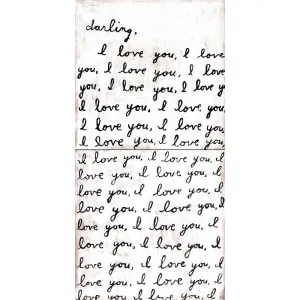 darling,
I love you, I love
you, I love you, I love
you, I love you, I love you,
I love you, I love you,
I love you, I love you,
I love you, I love you,
I love you, I love you, I
love you, I love you, I
love you, I love you, I
love you, I love you, I
love you, I love you, I
love you, I love you, I
love you, I love you, I
love you, I love you, I
you, I love you, I love